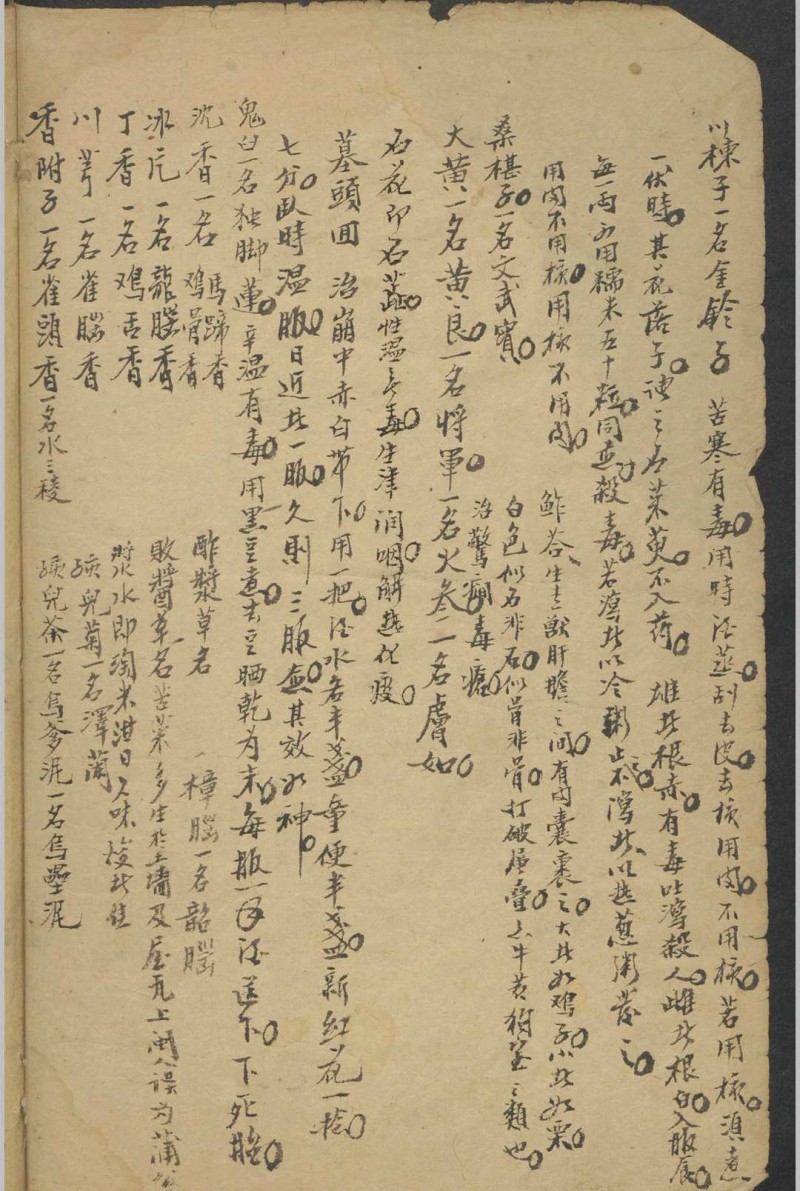 川楝子一名金鈴子　苦寒有毒用時酒蒸刮去皮去核用肉不用核若用核須煮
一伏時其花落子謂之石茱萸不入药　雄者根赤有毒吐瀉殺人雌者根白入服食
每一兩可用糯米五十粒同煎殺毒若瀉者以冷粥止不瀉者以热葱粥發之
用肉不用核用核不用肉　鮓荅生走獸肝膽之间有肉囊裹之大者如鸡子小者如栗
白色似石非石似骨非骨打破層疊亦牛黄狗宝之類也
桑椹子一名文武實　治驚癇毒瘡
大黄一名黄良一名將軍一名火参一名膚如
石花即石蕊性温無毒生津润咽解热化痰
墓頭回　治崩中赤白带下用一把酒水各半盏童便半盏新红花一捻
七分臥時温服日近者一服久則三服愈其效如神
鬼臼一名独脚蓮辛温有毒用黑豆煮去豆晒乾为末每服一酒送下下死胎
沉香一名鸡骨香馬蹄香　酢漿草名　樟腦一名韶腦
冰片一名龍腦香　敗醬草名苦菜多生於土墻及屋瓦上闽人误为蒲公
丁香一名鸡舌香　漿水即淘米泔日久味酸者佳
川芎一名雀腦香　孩兒菊一名澤蘭
香附子一名雀頭香一名水三稜　孩兒茶一名烏爹泥一名烏壘泥